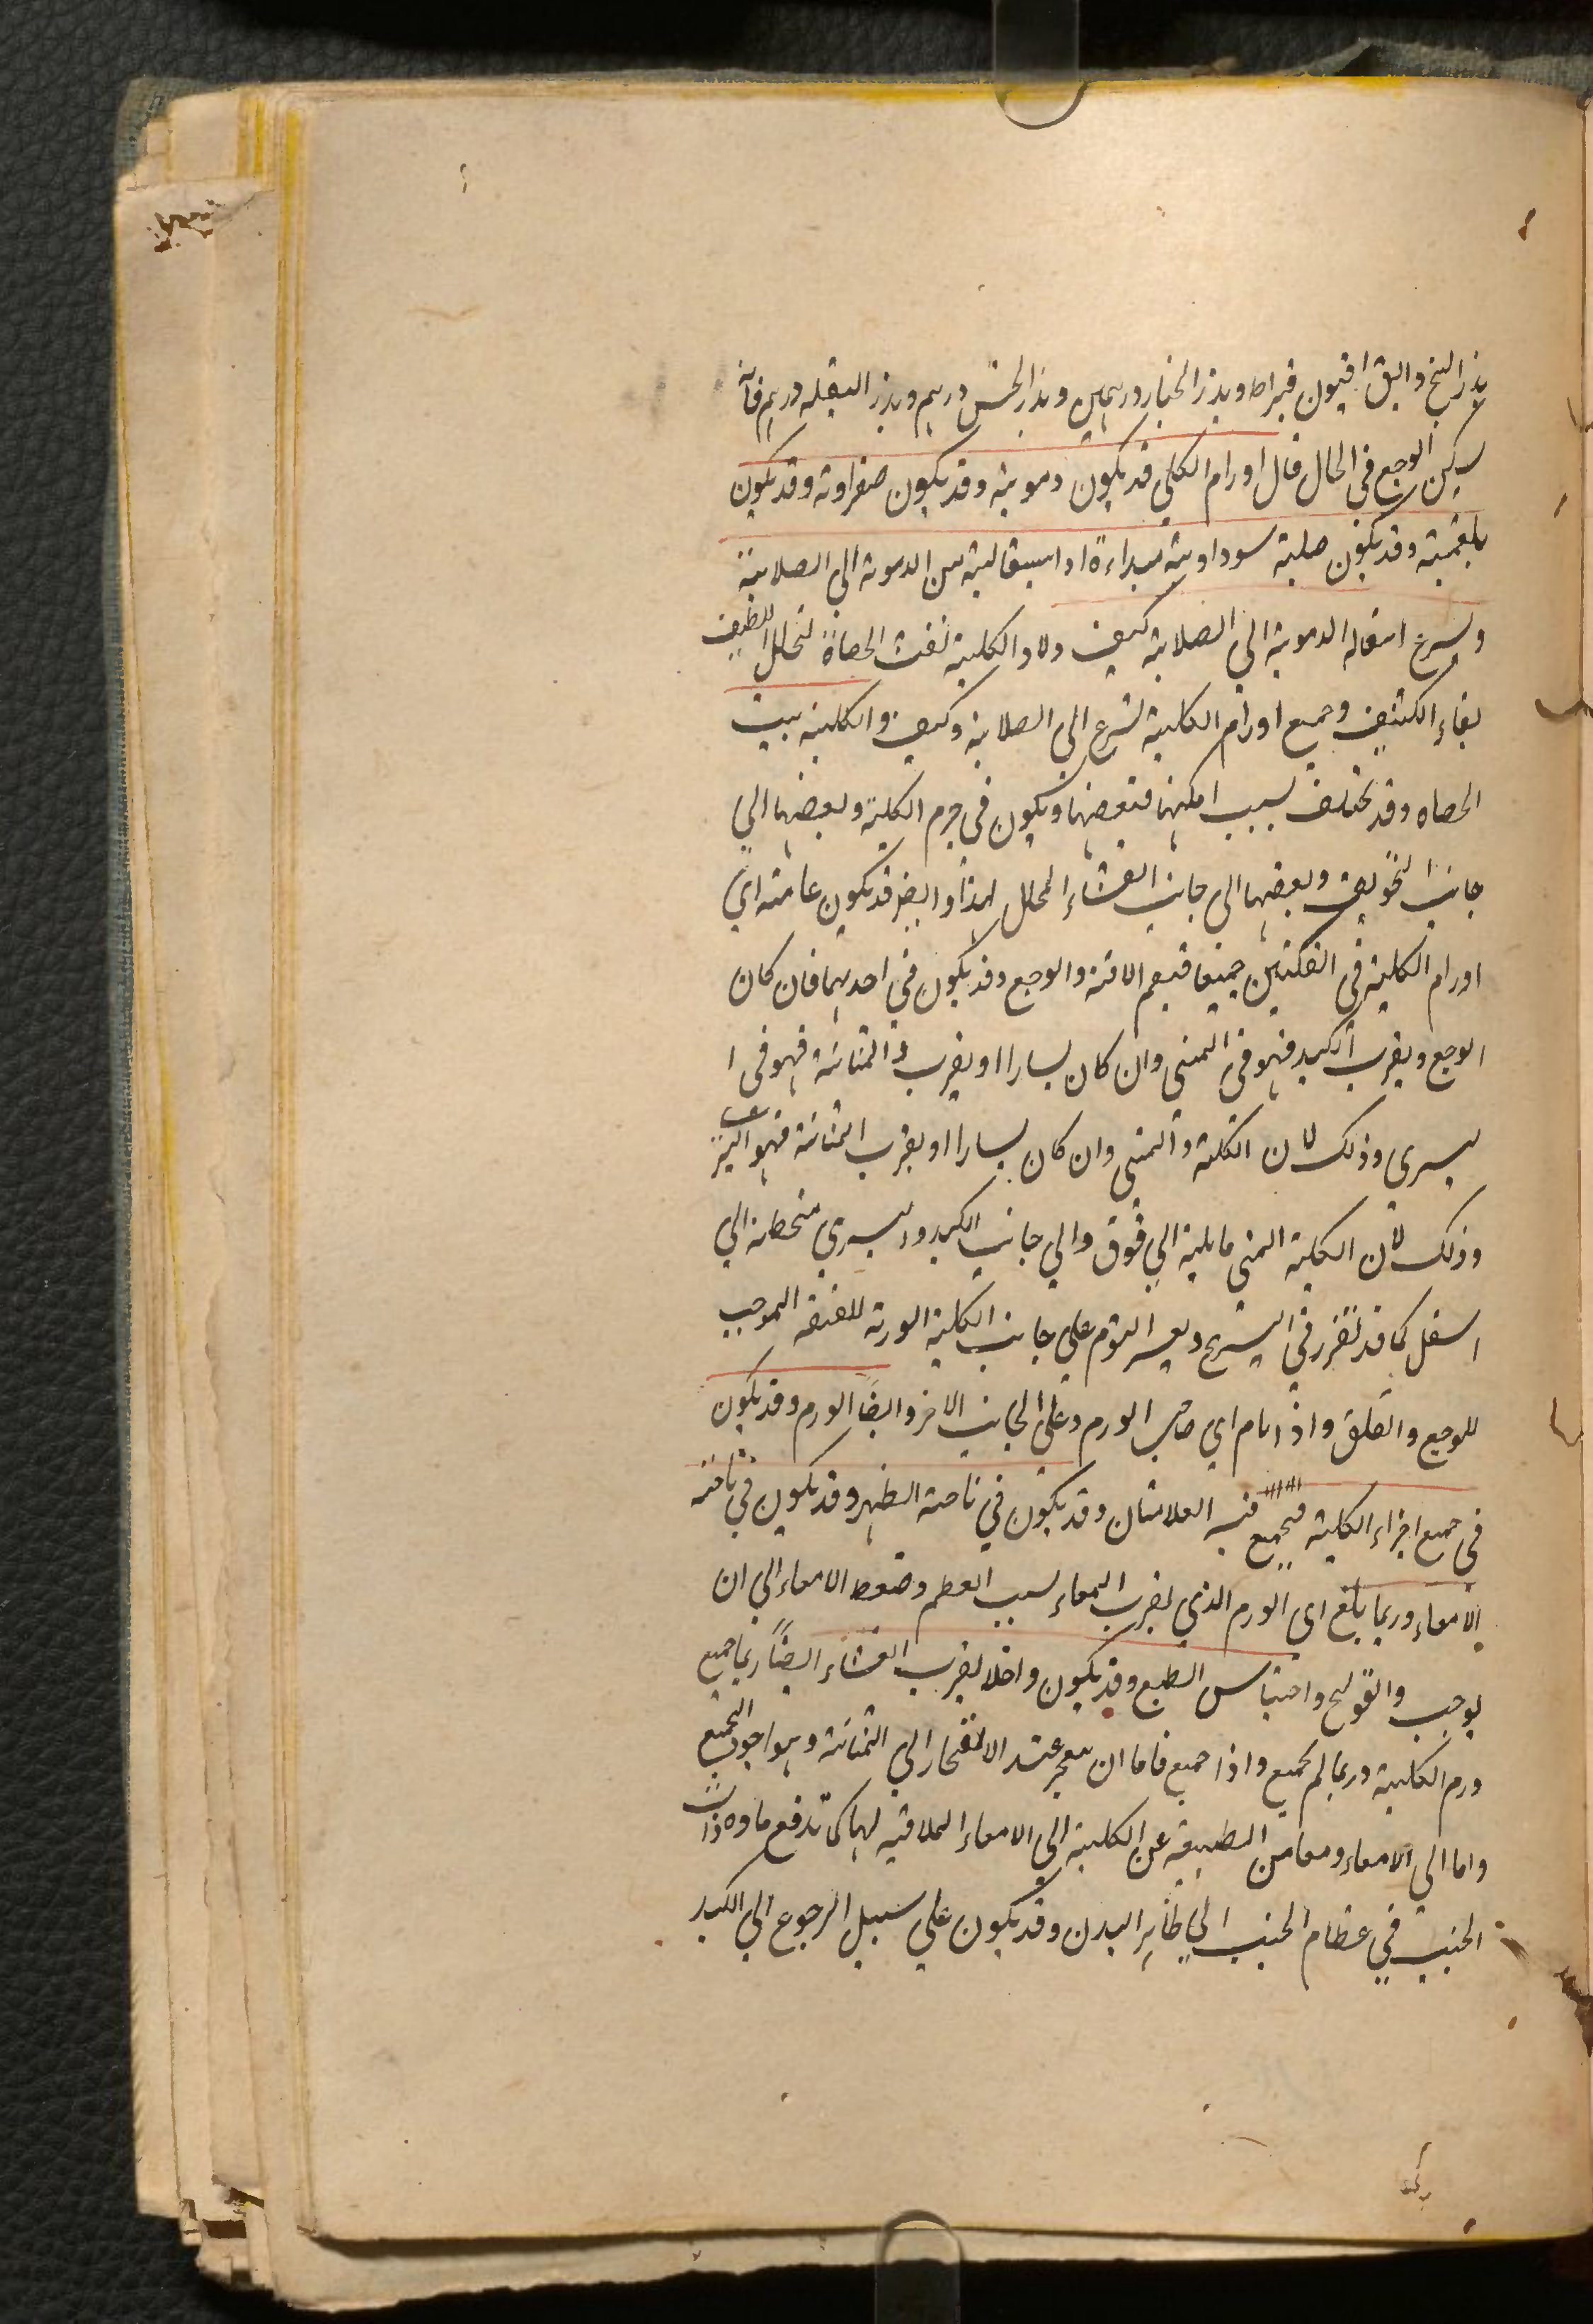 بذر البنج دانق افيون قيراط وبذر الخيار درهمين وبذر الخس درهم وبذر البقله درهم فانه
يسكن الوجع فى الحال قال اورام الكلي قد يكون دموية وقد يكون صفراوية وقد يكون
بلغمية وقد يكون صلبة سوداوية مبداءة او انتقالية من الدموية الي الصلابة
ويسرع انتقاله الدموية الي الصلابة كيف ولا والكلية تفت الحصاة لتحلل اللطيف
بقاء الكثيف وجميع اورام الكلية تسرع الي الصلابة وكيف والكلية بيت
الحصاه وقد تختلف بسبب امكنها فبعضها ويكون فى جرم الكلية وبعضها الي
جانب التجويف وبعضها الى جانب الغشاء المحلل لها وايضا قد يكون عامته اي
اورام الكلية في الكليتين جميعا فيعم الافة والوجع وقد يكون في احديهما فان كان
الوجع وبقرب الكبد فهو فى اليمنى وان كان يسارا او بقرب المثانة فهو فى ا
ليسرى وذلك لان الكلية واليمنى وان كان يسارا او بقرب المثانة فهو اليسرى
وذلك لان الكلية اليمنى مايلية الي فوق والي جانب الكبد واليسري منحطة الي
اسفل كما قد تقرر في التشريح ويعسر النوم علي جانب الكلية الورمة للضغط الموجب
للوجع والقلق واذا نام اي صاحب الورم وعلى الجانب الاخر وايضا الورم وقد يكون
فى جميع اجزاء الكلية فيجمع فيه العلامتان وقد يكون في ناحية الظهر وقد يكون في ناحية
الامعاء وربما بلغ اى الورم الذي بقرب المعاء بسبب العظم وضغط الامعاء الي ان
يوجب والقولنج واحتباس الطبع وقد يكون واخلا بقرب الغشاء ايضاً ربما جمع
ورم الكلية وربما لم يجمع واذا جمع فاما ان ينفجر عند الانفجار الي المثانة وهو اجود الجميع
واما الي الامعاء ومعا من الطبيعة عن الكلية الي الامعاء الملاقية لها كما تدفع ماده ذات
الجنب في عظام الجنب الي ظاهر البدن وقد يكون علي سبيل الرجوع الي الكبد